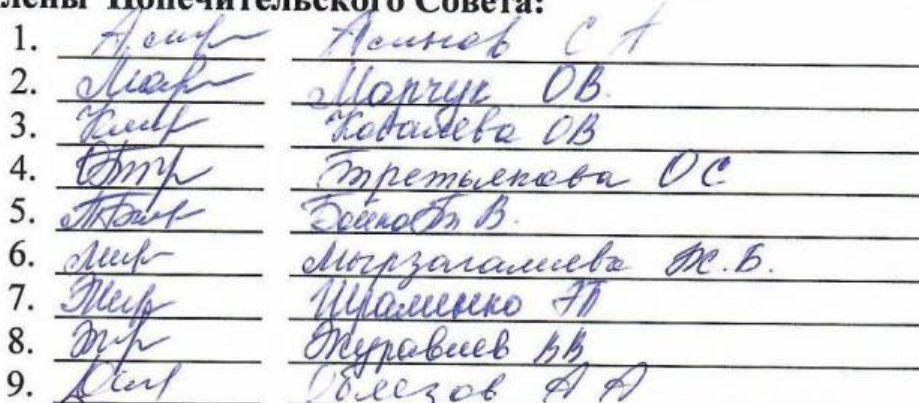 лены Попечительского Совета:
1. Асинов С А
2. Марчук ОВ.
3. Ковалева ОВ
4. Третьякова ОС
5. Бойко Т В.
6. Мырзагалиева Ж.Б.
7. Шраменко
8. Журавлев ВВ
9. А А